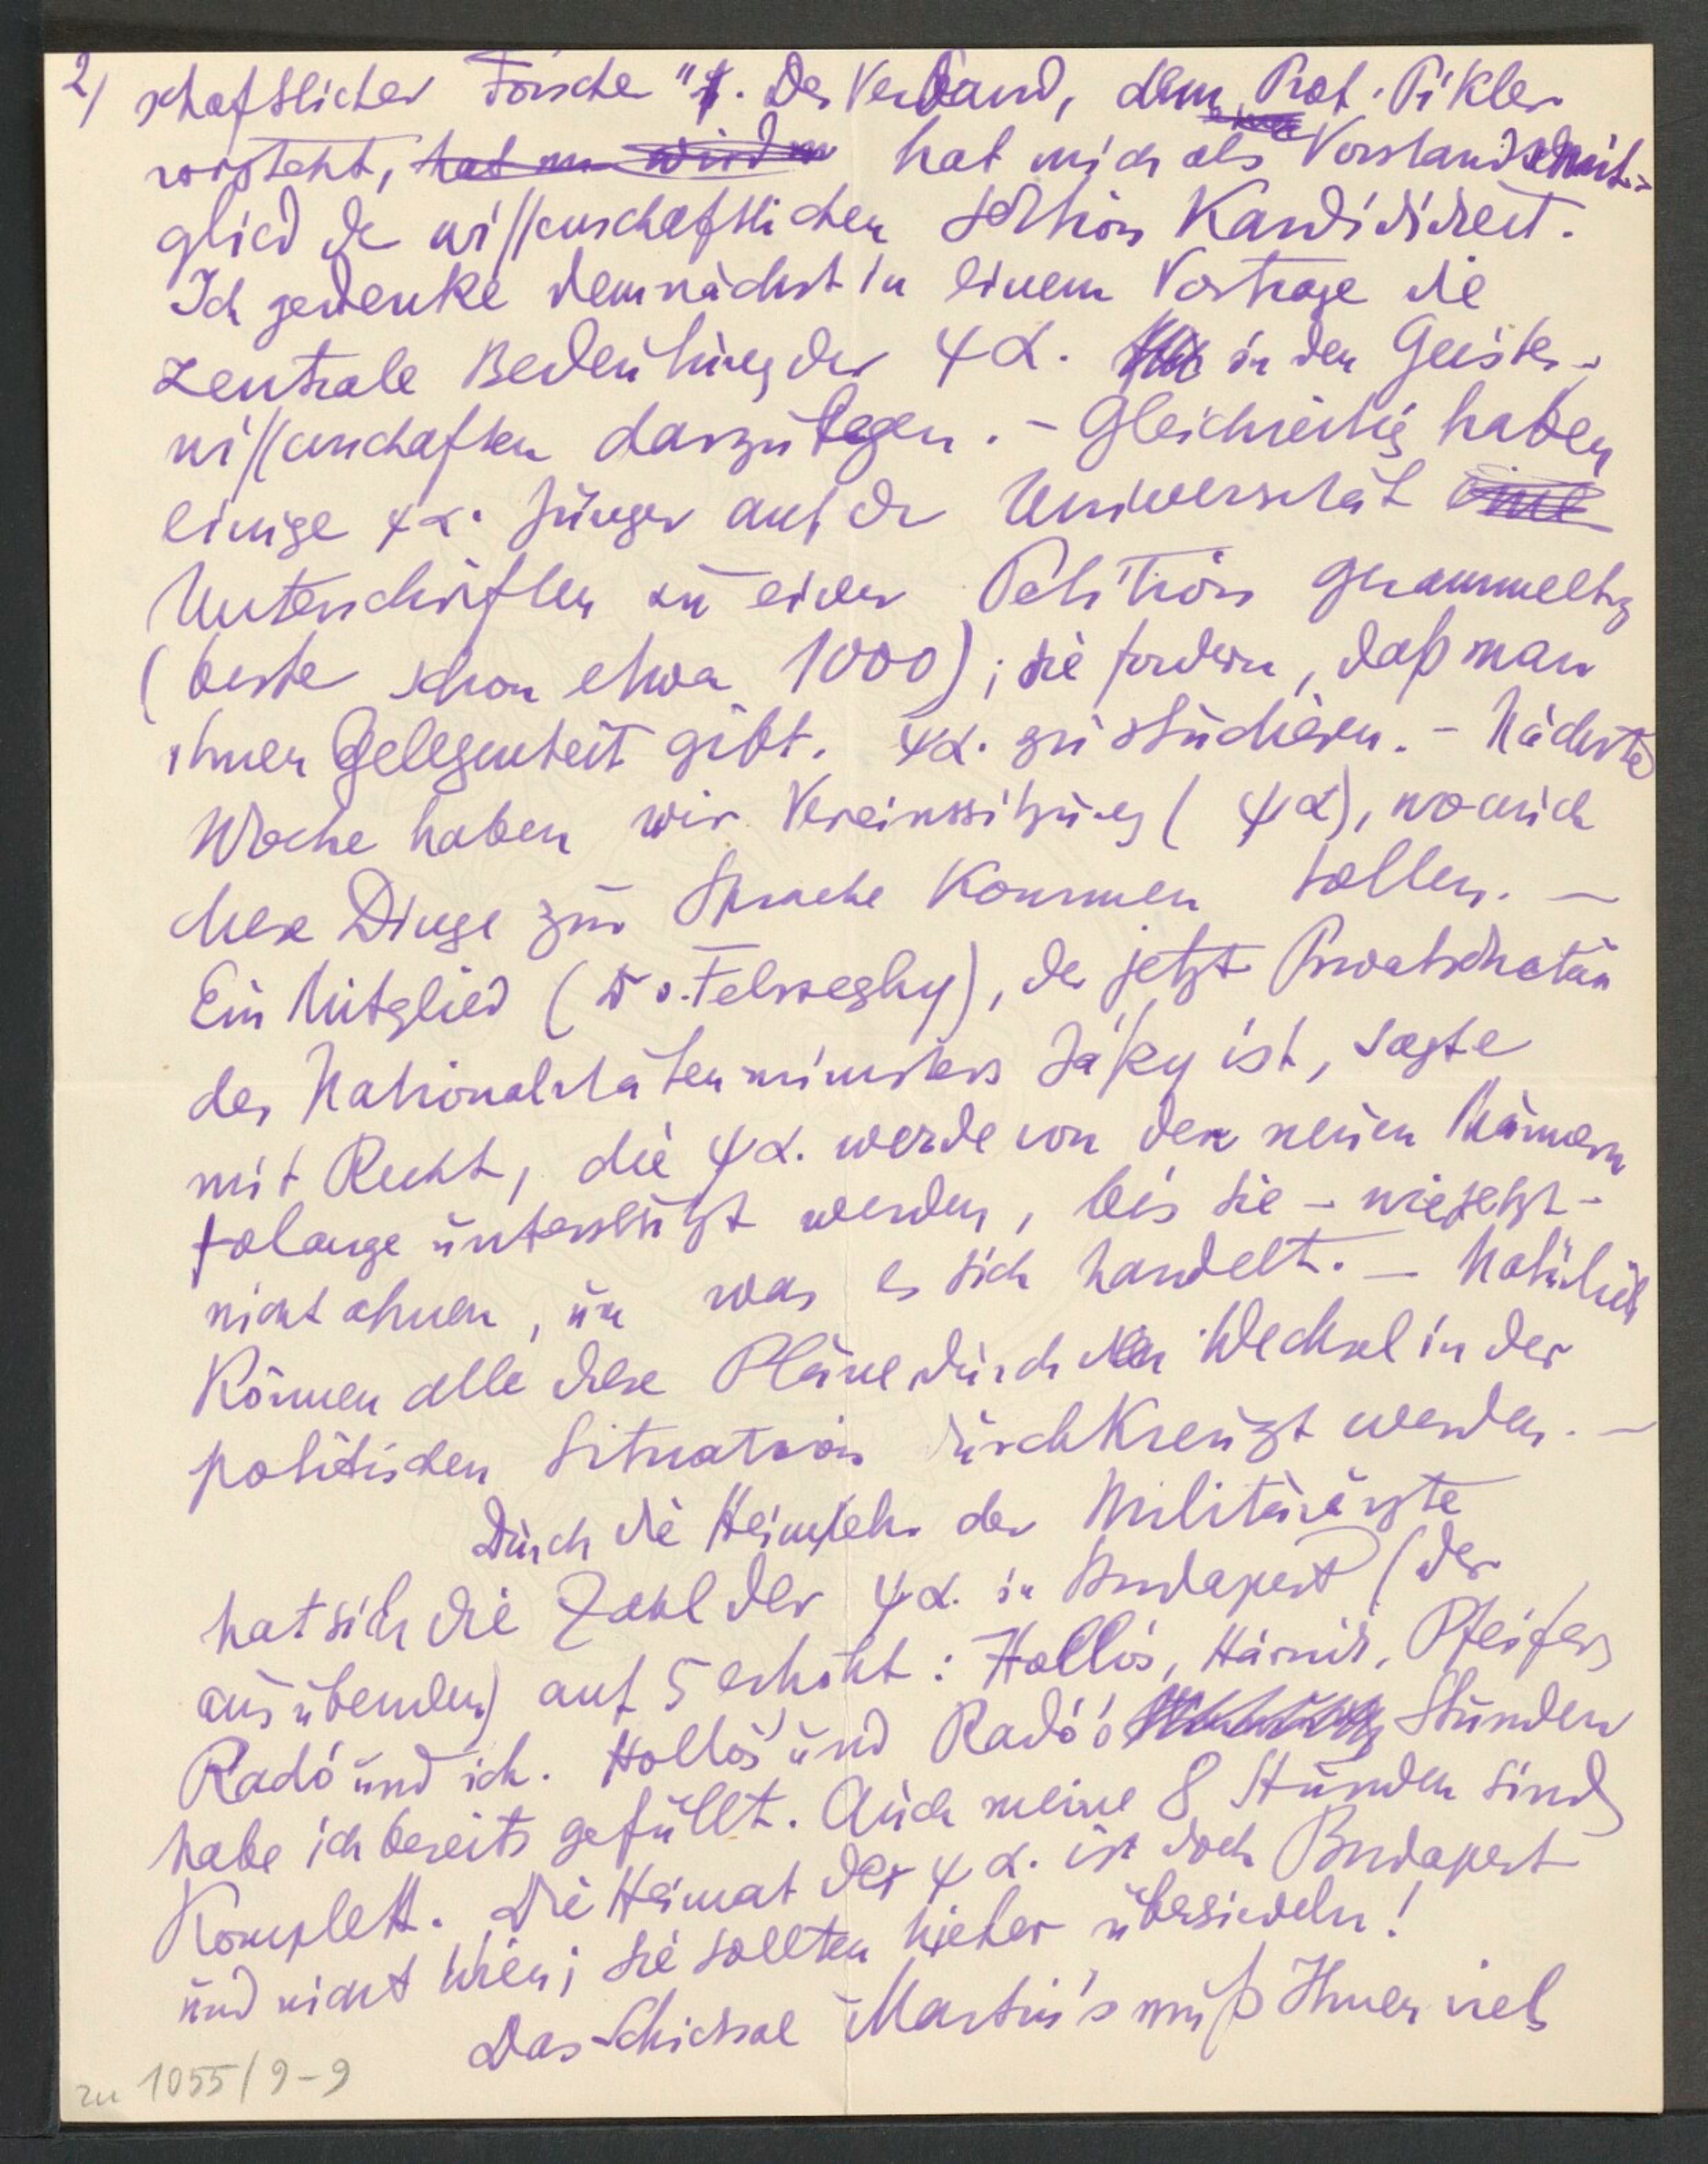 2) schaftlicher Forscher". Der Verband, dem Prof. Pikler
vorsteht, hat mich als Vorstandsmit-
glied der wissenschaftlichen Sektion kandidirt.
Ich gedenke demnächst in einem Vortrage die
zentrale Bedeutung der ψα. in den Geistes-
wissenschaften darzulegen. – Gleichzeitig haben
einige ψα. Jünger auf der Universität
Unterschriften zu einer Petition gesammelt
(heute schon etwa 1000); sie fordern, daß man
ihnen Gelegenheit gibt, ψα. zu studieren. – Nächste
Woche haben wir Vereinssitzung (ψα), wo auch
diese Dinge zur Sprache kommen sollen. –
Ein Mitglied (Dr. Felszeghy), der jetzt Privatsekretär
des Nationalitätenministers Jászy ist, sagte
mit Recht, die ψα. werde von den neuen Männern
solange unterstützt werden, bis sie – wie jetzt –
nicht ahnen, um was es sich handelt. – Natürlich
können alle diese Pläne durch den Wechsel in der
politischen Situation durchkreuzt werden. –
Durch die Heimkehr der Militärärzte
hat sich die Zahl der ψα. in Budapest (der
ausübenden) auf 5 erhöht: Hollós, Hárnik, Pfeifer,
Radó und ich. Hollós' und Radó's Stunden
habe ich bereits gefüllt. Auch meine 8 Stunden sind
komplett. Die Heimat der ψα. ist doch Budapest
und nicht Wien; Sie sollten hieher übersiedeln!
Das Schicksal Martin's muß Ihnen viel
zu 1055/9-9